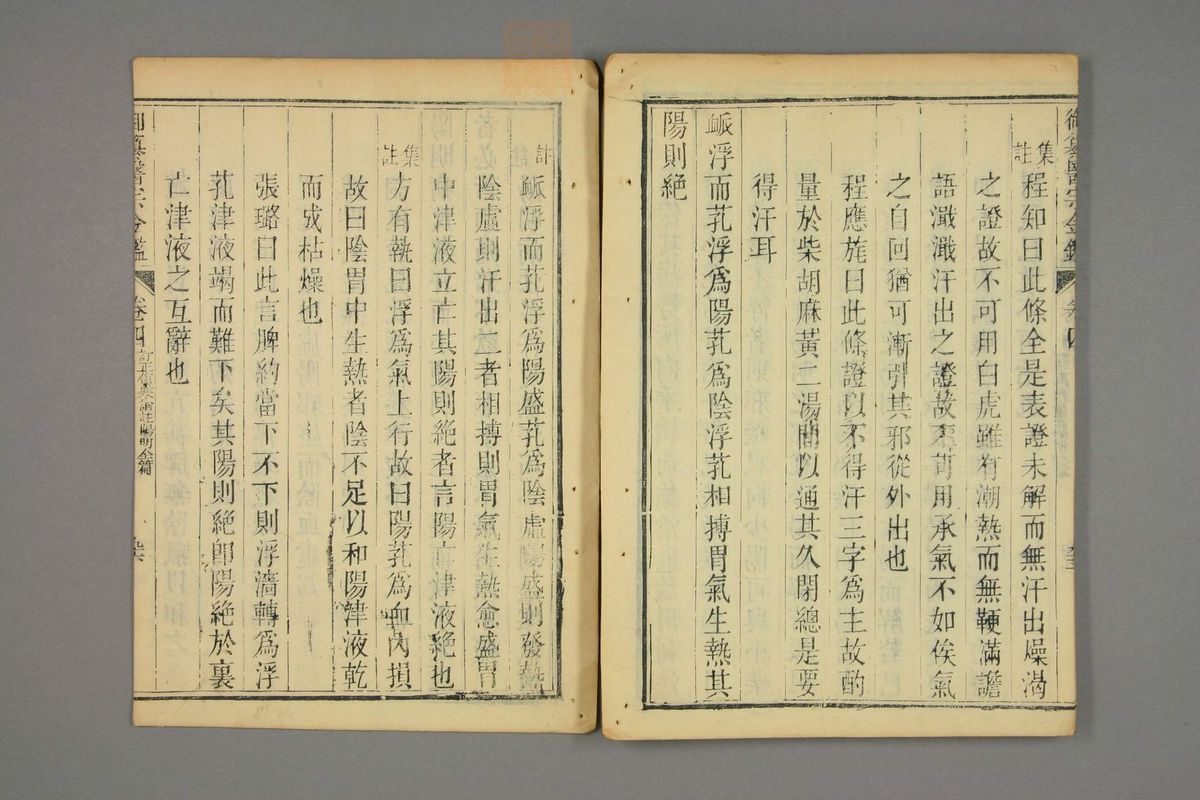 集註
程知曰此條全是表證未解而無汗出燥渴
之證故不可用白虎雖有潮熱而無鞕滿譫
語濈濈汗出之證故不可用承氣不如俟氣
之自回猶可漸引其邪從外出也
程應旄曰此條證以不得汗三字爲主故酌
量於柴胡麻黃二湯間以通其久閉總是要
得汗耳
衇浮而芤浮爲陽芤爲陰浮芤相摶胃氣生熱其
陽則絶
註
衇浮而芤浮爲陽盛芤爲陰虛陽盛則發熱
陰虛則汗出二者相摶則胃氣生熱愈盛胃
中津液立亡其陽則絶者言陽亡津液絶也
集註
方有執曰浮爲氣上行故曰陽芤爲血內損
故曰陰胃中生熱者陰不足以和陽津液乾
而成枯燥也
張璐曰此言脾約當下不下則浮濇轉爲浮
芤津液竭而難下矣其陽則絶卽陽絶於裏
亡津液之互辭也
御纂醫宗金鑑
卷四